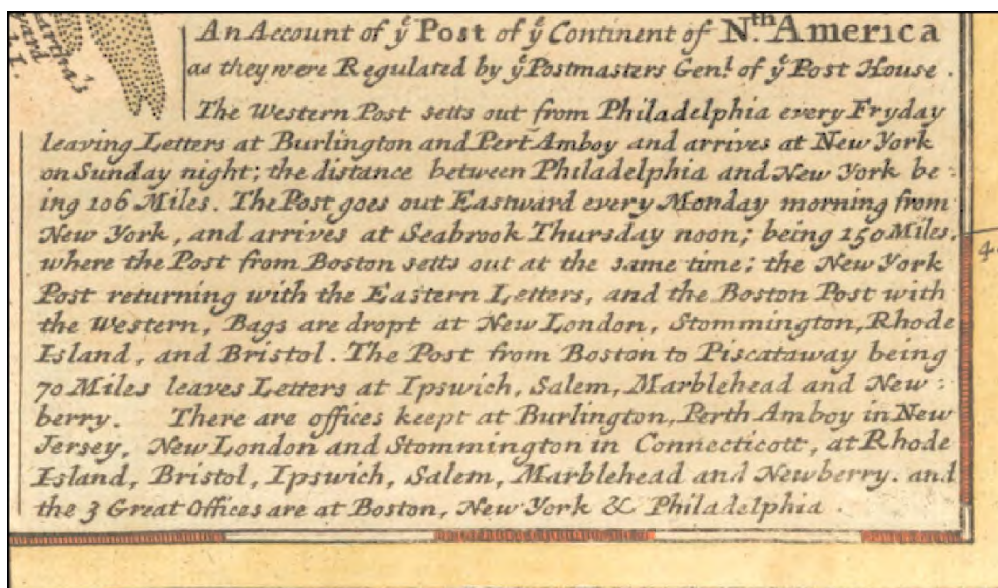 artha's
yard
I.
An Account of yᵉ Post of yᵉ Continent of Nᵗʰ. America
as they were Regulated by yᵉ Postmasters Genˡ. of yᵉ Post House.
The Western Post setts out from Philadelphia every Fryday
leaving Letters at Burlington and Pert Amboy and arrives at New York
on Sunday night; the distance between Philadelphia and New York be:
ing 106 Miles. The Post goes out Eastward every Monday morning from
New York, and arrives at Seabrook Thursday noon; being 150 Miles,
where the Post from Boston setts out at the same time; the New York
Post returning with the Eastern Letters, and the Boston Post with
the Western, Bags are dropt at New London, Stommington, Rhode
Island, and Bristol. The Post from Boston to Piscataway being
70 Miles leaves Letters at Ipswich, Salem, Marblehead and New:
berry. There are offices keept at Burlington, Perth Amboy in New
Jersey, New London and Stommington in Connecticott, at Rhode
Island, Bristol, Ipswich, Salem, Marblehead and Newberry. and
the 3 Great Offices are at Boston, New York & Philadelphia.